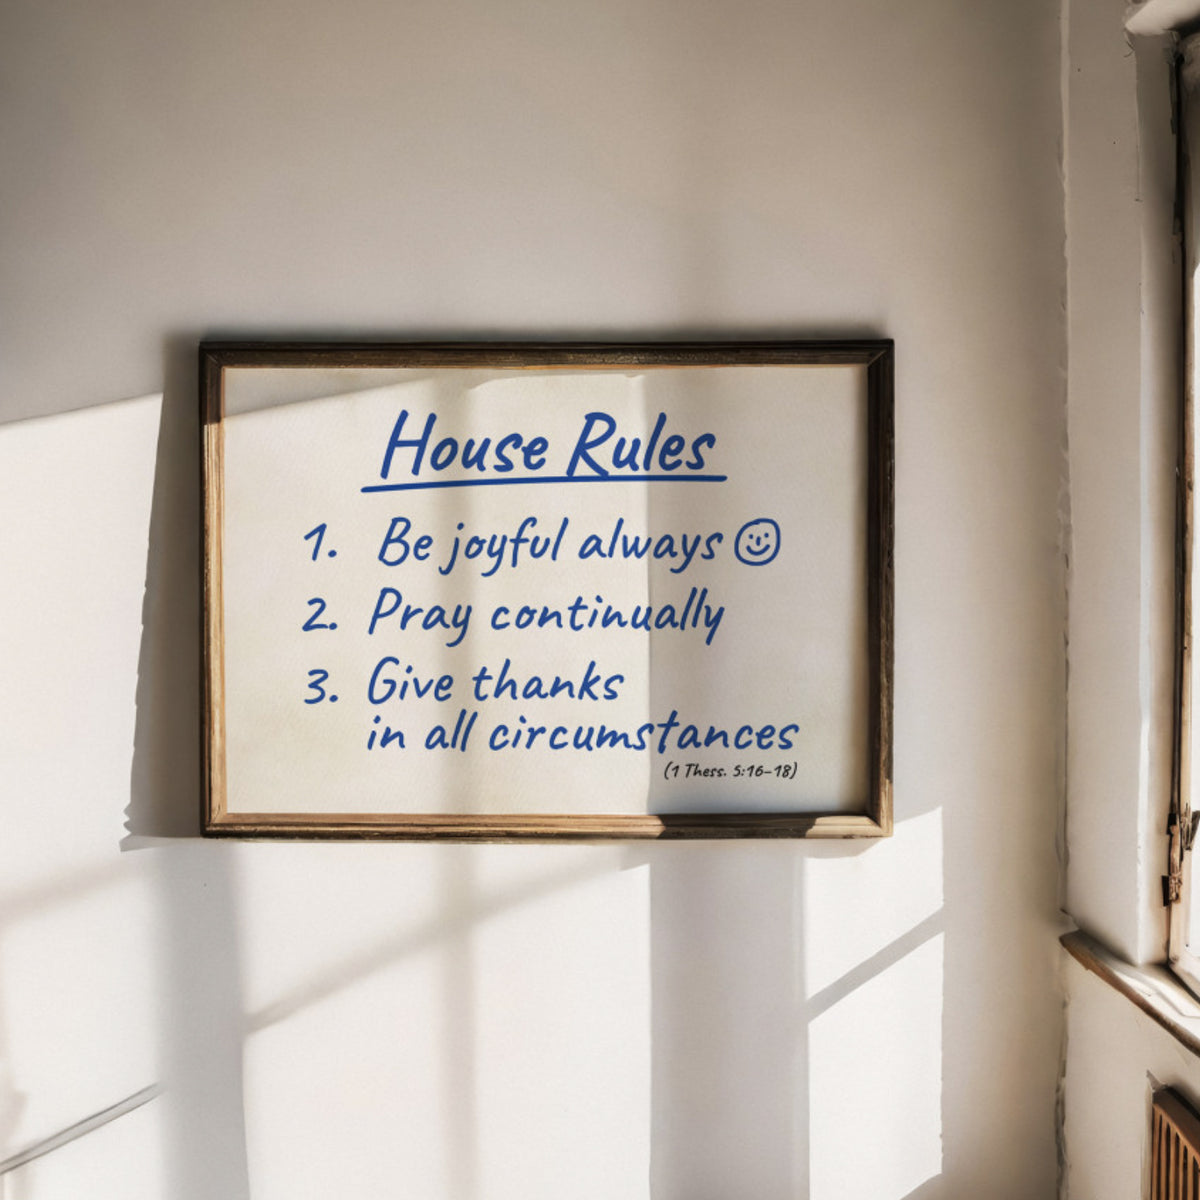 House Rules
1. Be joyful always
2. Pray continually
3. Give thanks
in all circumstances
(1 Thess. 5:16–18)